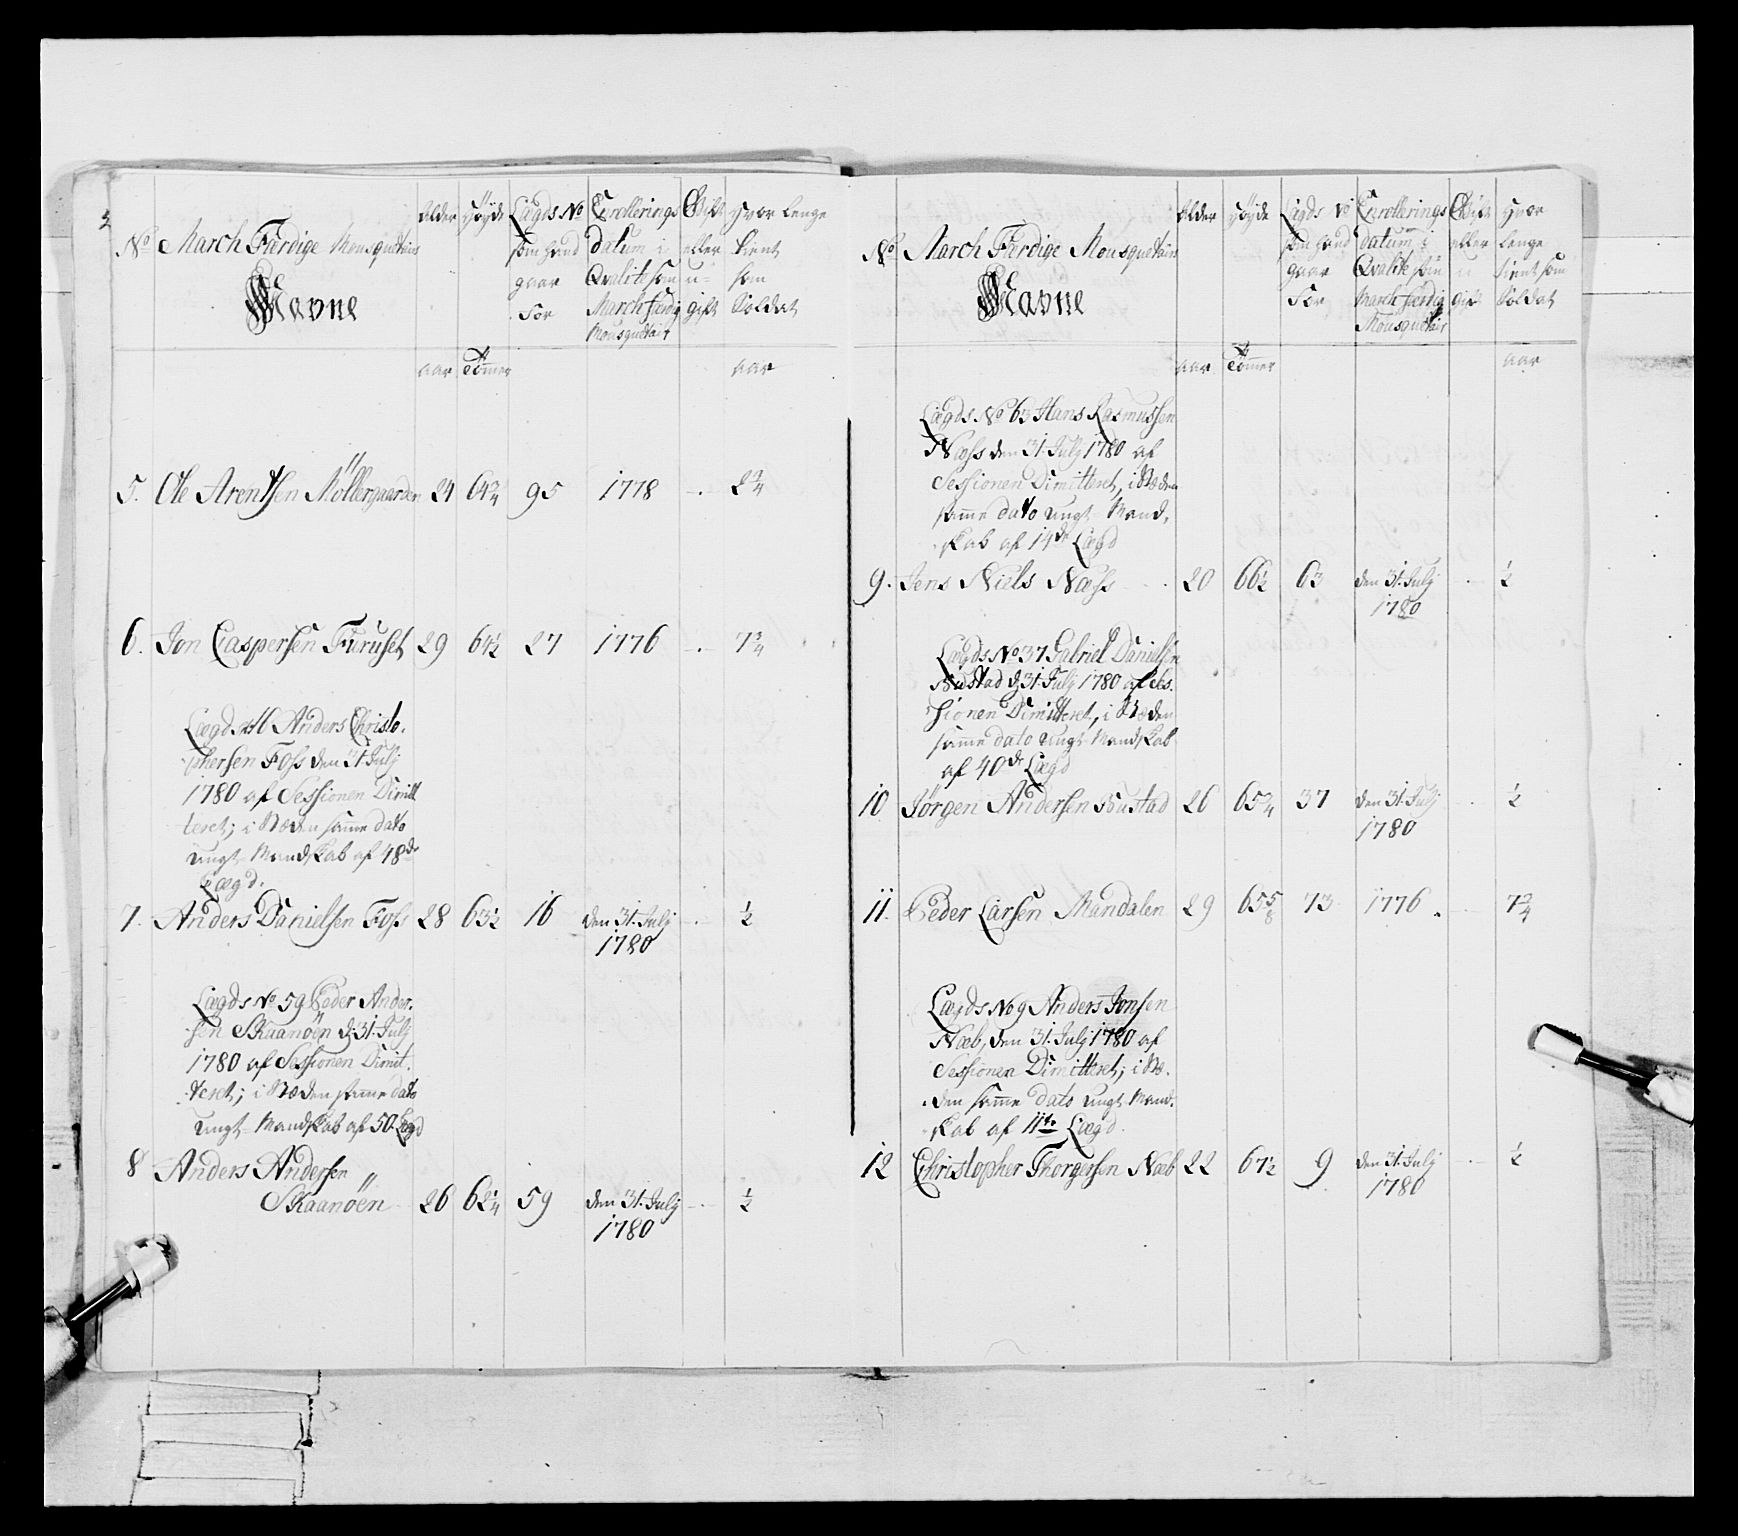 No March Færdige Mousquetairs
Navne
Alder
Høyde
Lægds No
som hand
gaar
for
Enrollerings
datum i
Qvalite som
March færdig
Mousquetair
Gift
eller
u-
gift
Hvor lenge
tient
som
Soldat
aar Tommer aar
5. Ole Arentsen Möllergaarden 24 64¾ 95 1778 -.- 2¾
6. Jon Caspersen Furuset 29 64½ 27 1776 -.- 7¾
Lægd Anders Christo-
phersen Foss den 31. Julj
1780 af Sessionen Dimit
teret; i Stæden samme dato
ungt Mandskab af 48de
Lægd.
7. Anders Danielsen Foss 28 63½ 16 den 31. Julj -.- ½
1780
Lægds No 59 Peder Ander-
sen Skaanöen d: 31. Julj
1780 af Sessionen Dimit-
teret; i Stæden samme dato
ungt Mandskab af 50. Lægd
8 Anders Andersen
Skaanöen 26 62¼ 59 den 31. Julj -.- ½
1780
No March Færdige Mousquetairs
Navne
Alder
Høyde
Lægds No
som hand
gaar
for
Enrollerings
datum i
Qvalite som
March færdig
Mousquetair
Gift
eller
u
gift
Hvor
lenge
tient som
Soldat
aar Tommer aar
Lægds No 63 Hans Rasmussen
Næss den 31. Julj 1780 af
Sessionen Dimitteret, i Stæden
samme dato ungt Mand-
skab af 14de Lægd
9. Jens Niels Næss 20 66½ 63 den 31. Julj -.- ½
1780
Lægds No 37 Gabriel Danielsen
Nustad d: 31. Julj 1780 af Ses-
sionen Dimitteret, i Stæden
samme dato ungt Mandskab
af 40de Lægd
10 Jörgen Andersen Nustad 26 65¾ 37 den 31. Julj -.- ½
1780
11. Peder Larsen Mundalen 29 65⅝ 73 1776 . - 7¾
Lægds No 9 Anders Jonsen
Næb, den 31. Julj 1780 af
Sessionen Dimitteret; i Stæ-
den samme dato ungt Mand-
skab af 11te Lægd.
12 Christopher Thorgersen Næb 22 67½ 9 den 31. Julj -.- ½
1780